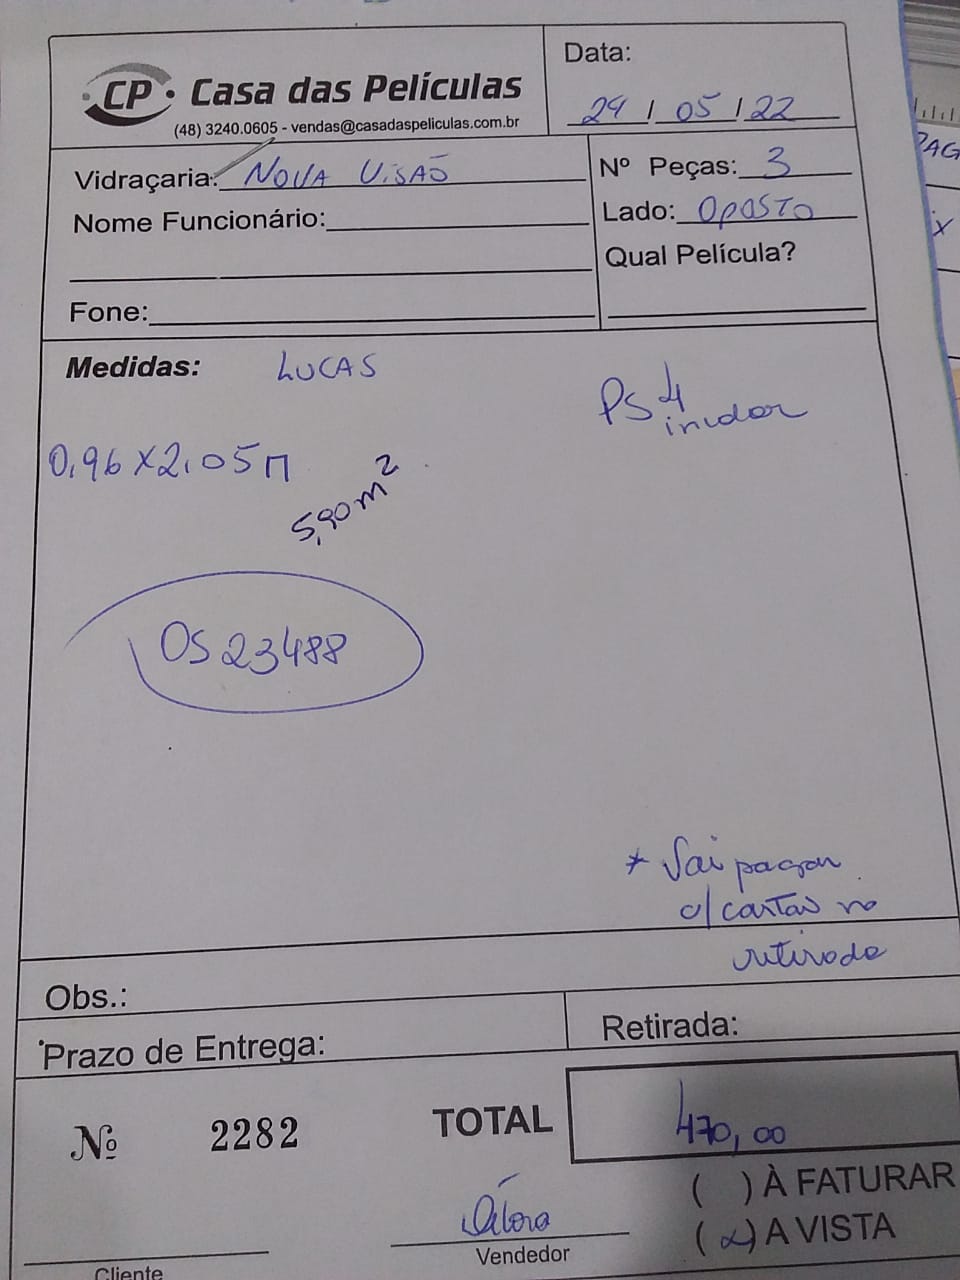 CP Casa das Películas
(48) 3240.0605 - vendas@casadaspeliculas.com.br
Data:
24 / 05 / 22
Vidraçaria: NOVA VISÃO
Nº Peças: 3
Nome Funcionário:
Lado: OPOSTO
Qual Película?
Fone:
Medidas: LUCAS
PS4
0,96 X 2,05
5,90 m²
OS 23488
* Vai pagar
c/ cartão na
retirada
Obs.:
Prazo de Entrega:
Retirada:
Nº 2282
TOTAL 470,00
( ) À FATURAR
(x) A VISTA
Vendedor
Cliente
PAG
x